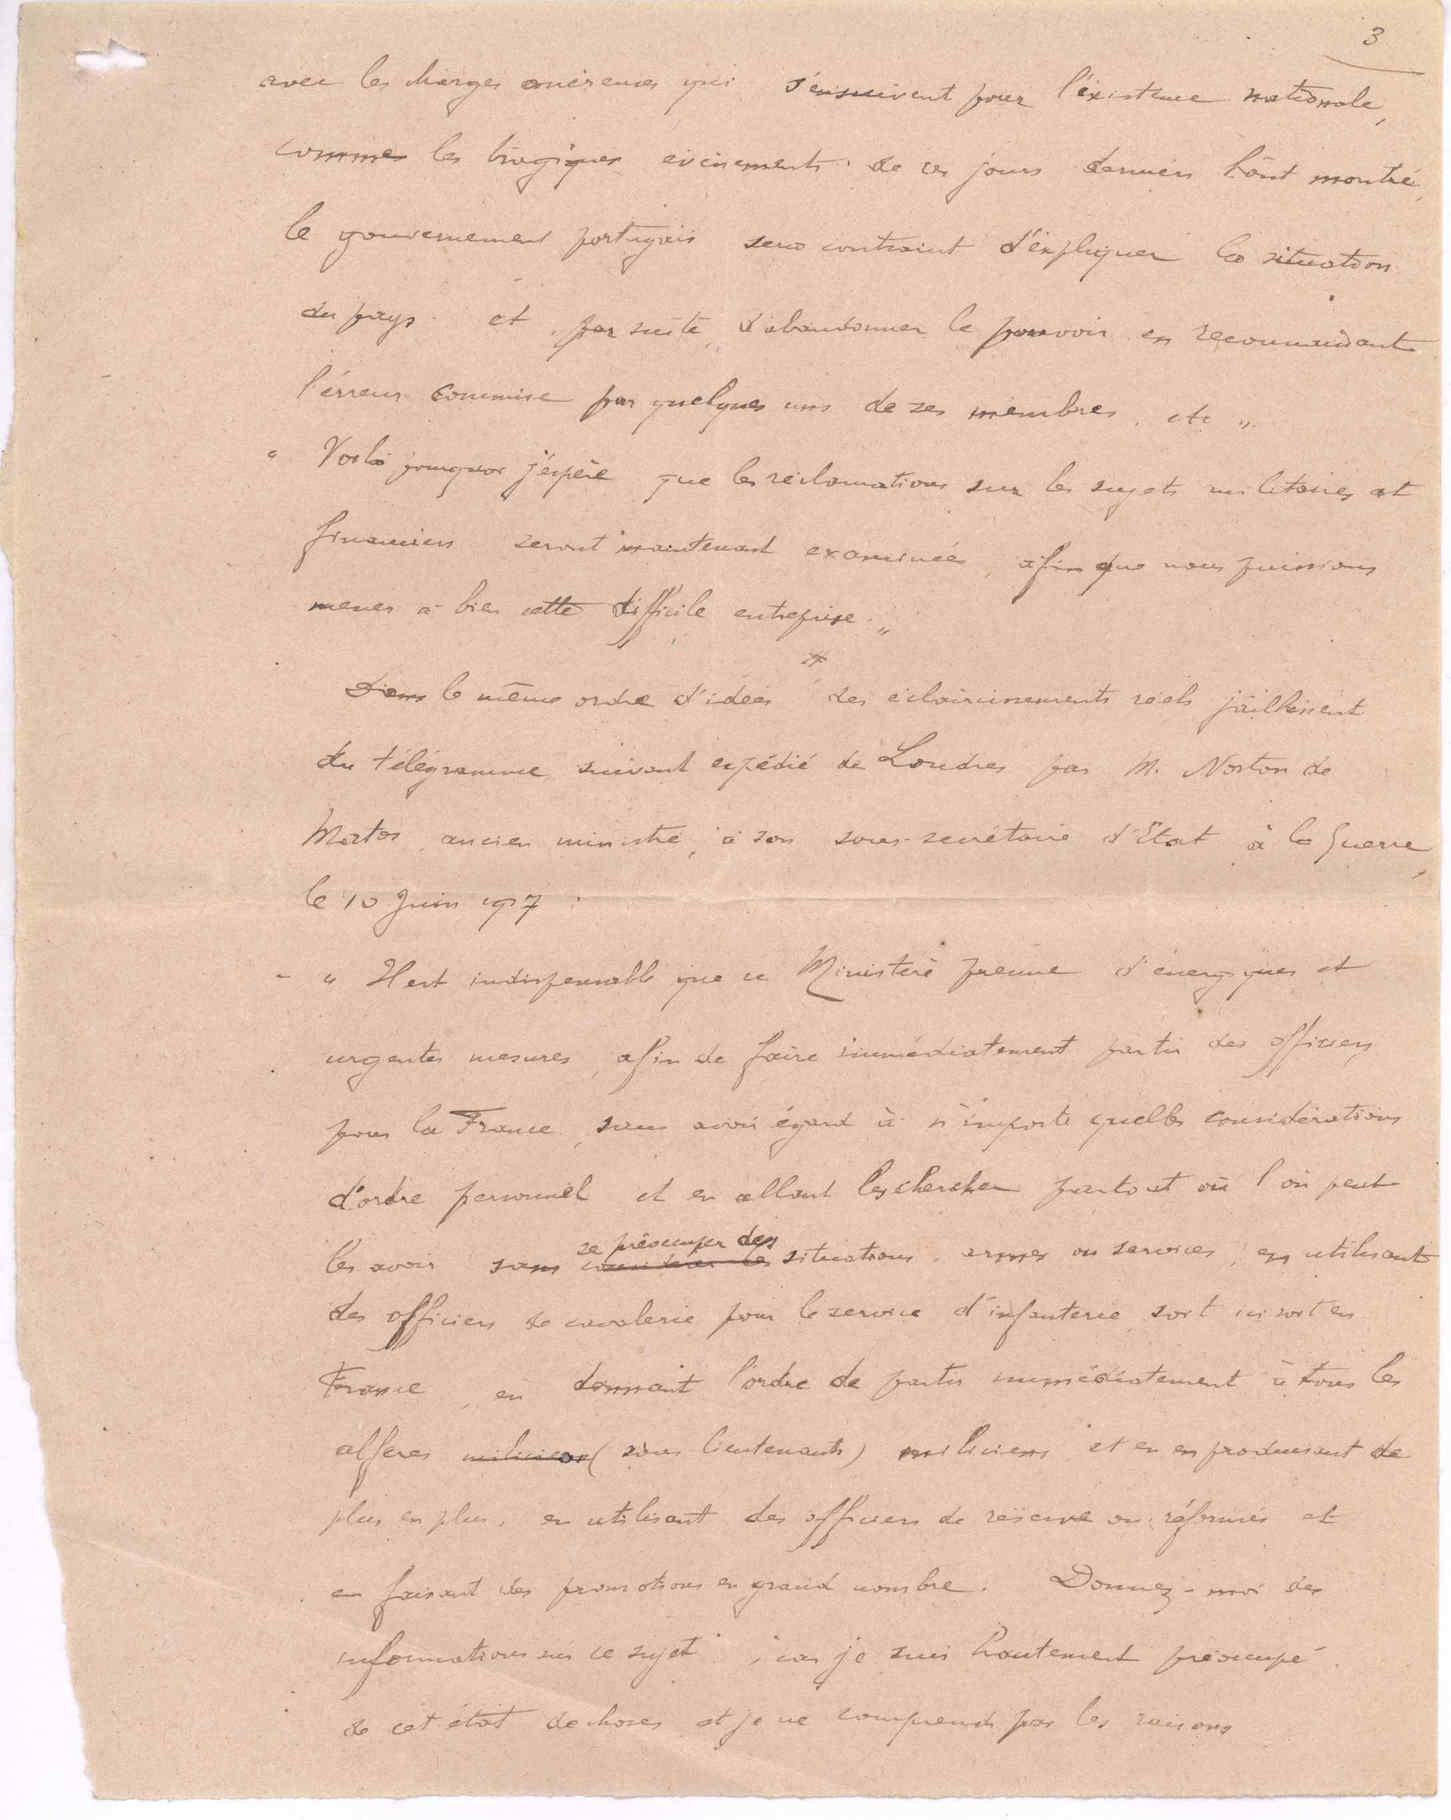 3
avec les charges onéreuses qui s'ensuivent pour l'éxistence nationale,
comme les tragiques évènements de ces jours derniers l'ont montré,
le gouvernement portugais sera contraint d'expliquer la situation
du pays et, par suite, d'abandonner le pouvoir en reconnaissant
l'érreur commise par quelques uns de ses membres, etc „
" Voilà pourquoi j'espère que les réclamations sur les sujets militaires et
financiers seront maintenant examinées, afin que nous puissions
mener à bien cette difficile entreprise. „
Dans le même ordre d'idées des éclaircissements réels jaillissent
du télégramme suivant expédié de Londres par M. Norton de
Matos, ancien ministre, à son sous-secrétaire d'Etat à la Guerre,
le 10 Juin 1917 :
- " Il est indispensable que ce Ministère prenne d'énergiques et
urgentes mesures, afin de faire immédiatement partir des officiers
pour la France, sans avoir égard à n'importe quelles considérations
d'ordre personnel et en allant les chercher partout où l'on peut
les avoir sans se préoccuper des situations, armes ou services, en utilisant
des officiers de cavalerie pour le service d'infanterie soit ici soit en
France, en donnant l'ordre de partir immédiatement à tous les
alferes miliciens (sous lieutenants) miliciens et en en produisant de
plus en plus, en utilisant des officiers de réserve ou réformés et
en faisant des promotions en grand nombre. Donnez-moi des
informations sur ce sujet, car je suis hautement préoccupé
de cet état de choses et je ne comprends pas les raisons